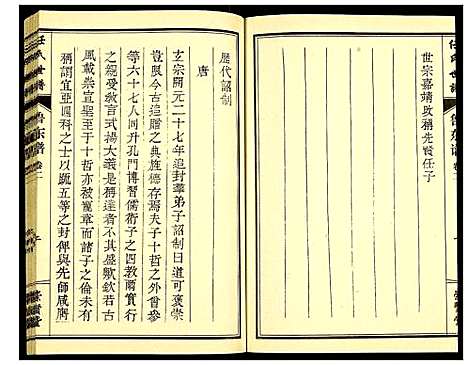 世宗嘉靖改稱先賢任子
任氏世譜
魯东谱
卷二
歷代詔制
唐
玄宗開元二十七年追封羣弟子詔制曰道可褒崇
豈限今古追贈之典旌德存焉夫子十哲之外曾參
等六十七人同升孔門博習儒術子之四教爾實行
之經受敘言式揚大義是稱達者不其盛歟欽若古
風載崇宣聖至于十哲亦被寵章而諸子之倫未有
稱謂宜亞四科之士以疏五等之封俾與先師咸膺